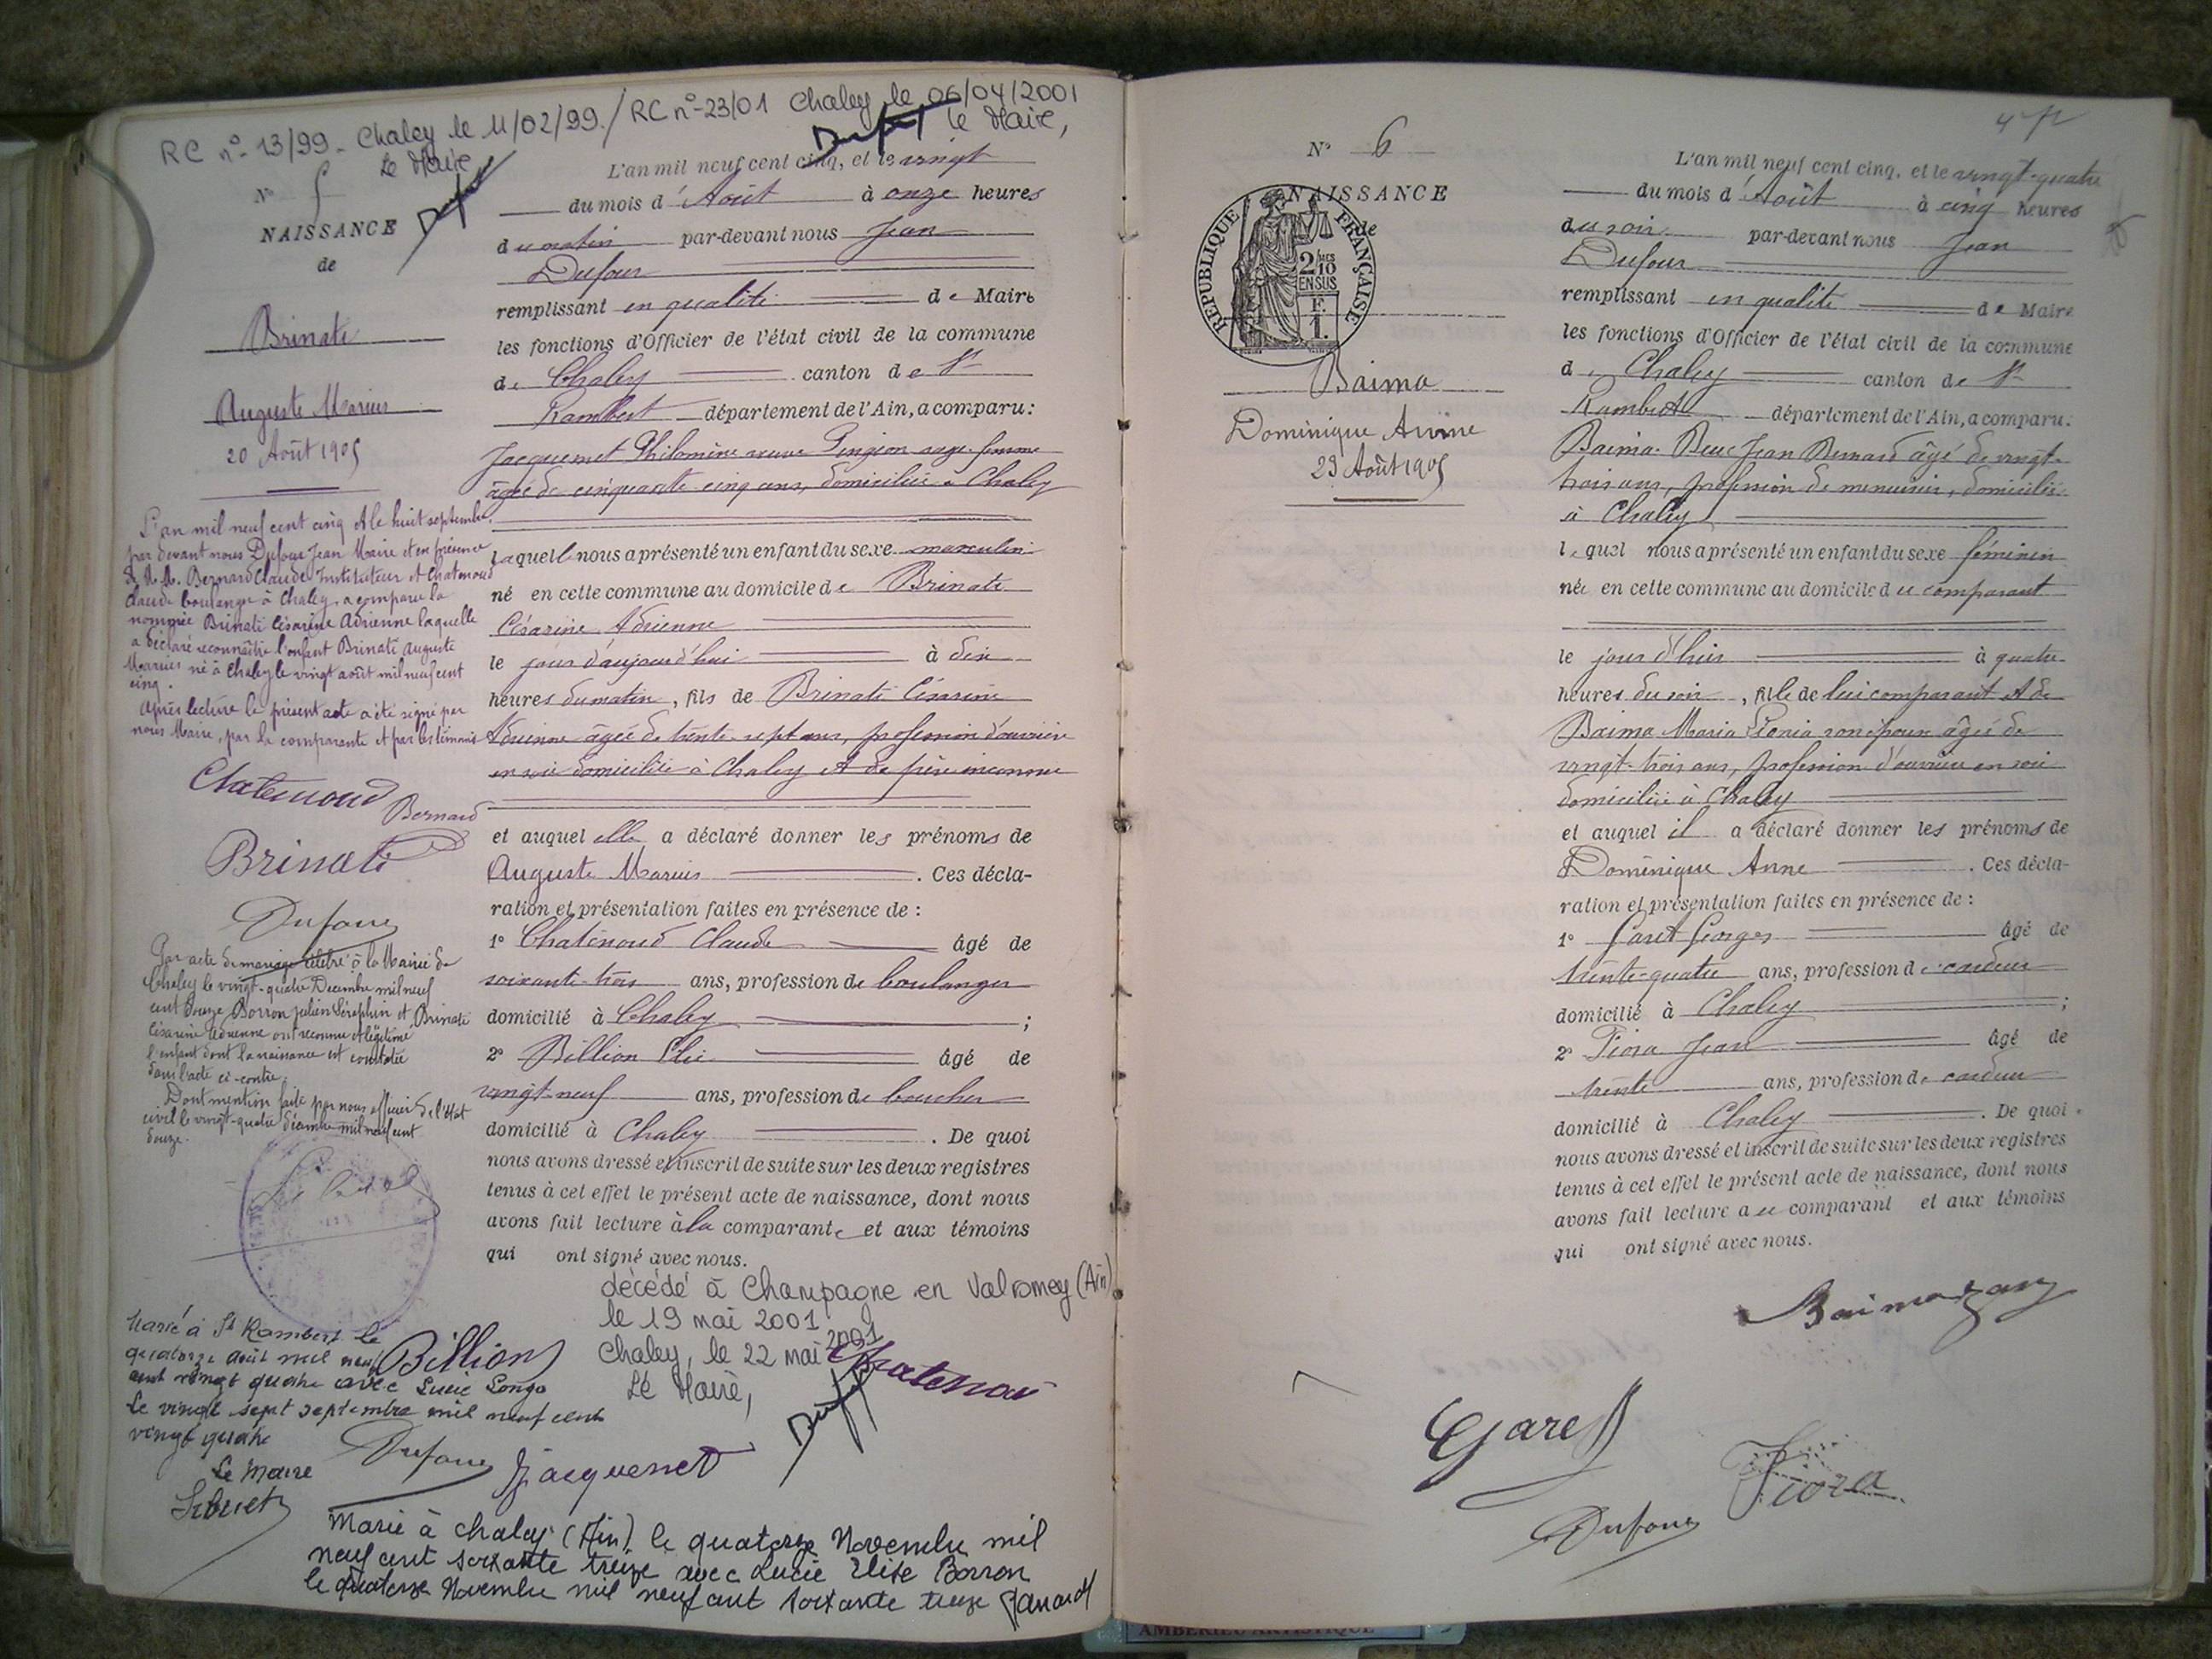 RC n° 13/99 - Chaley le 11/02/99. / RC n° 23/01 Chaley le 06/04/2001
Le Maire
le Maire,
N° 5
NAISSANCE
de
Brinati
Auguste Marius
20 Août 1905
L'an mil neuf cent cinq et le huit septembre,
par devant nous Dufour Jean Maire et en présence
de M.M. Bernard Claude Instituteur et Chatenoud
Claude boulanger à Chaley, a comparu la
nommée Brinati Césarine Adrienne laquelle
a déclaré reconnaître l'enfant Brinati Auguste
Marius né à Chaley le vingt août mil neuf cent
cinq.
Après lecture le présent acte a été signé par
nous Maire, par la comparante et par les témoins
Chatenoud
Bernard
Brinati
Dufour
Par acte de mariage célébré à la Mairie de
Chaley le vingt-quatre Décembre mil neuf
cent douze Borron Julien Séraphin et Brinati
Césarine Adrienne ont reconnu et légitimé
l'enfant dont la naissance est constatée
dans l'acte ci-contre.
Dont mention faite par nous officier de l'état
civil le vingt-quatre décembre mil neuf cent
douze.
Marié à St Rambert le
quatorze août mil neuf
cent vingt quatre avec Lucie Longo
Le vingt sept septembre mil neuf cent
vingt quatre
Le Maire
L'an mil neuf cent cinq, et le vingt
du mois d'Août à onze heures
du matin par-devant nous Jean
Dufour
remplissant en qualité de Maire
les fonctions d'Officier de l'état civil de la commune
de Chaley canton de St
Rambert département de l'Ain, a comparu:
Jacquemet Philomène veuve sage-femme
âgée de cinquante-cinq ans, domiciliée à Chaley
laquelle nous a présenté un enfant du sexe masculin
né en cette commune au domicile de Brinati
Césarine Adrienne
le jour d'aujourd'hui à dix
heures du matin, fils de Brinati Césarine
Adrienne âgée de trente-sept ans, profession d'ouvrière
en soie domiciliée à Chaley et de père inconnu
et auquel elle a déclaré donner les prénoms de
Auguste Marius. Ces décla-
ration et présentation faites en présence de :
1° Chatenoud Claude âgé de
soixante-trois ans, profession de boulanger
domicilié à Chaley ;
2° Billion Elie âgé de
vingt-neuf ans, profession de boucher
domicilié à Chaley. De quoi
nous avons dressé et inscrit de suite sur les deux registres
tenus à cet effet le présent acte de naissance, dont nous
avons fait lecture à la comparante et aux témoins
qui ont signé avec nous.
décédé à Champagne en Valromey (Ain)
le 19 mai 2001
Chaley, le 22 mai 2001
Le Maire,
Billion
Chatenoud
Dufour
Jacquemet
Marié à Chaley (Ain) le quatorze Novembre mil
neuf cent soixante treize avec Lucie Elise Borron
le quatorze Novembre mil neuf cent soixante treize
N° 6
NAISSANCE
de
REPUBLIQUE FRANÇAISE
2/10
EN SUS
F.
1.
Baima
Dominique Anne
23 Août 1905
L'an mil neuf cent cinq, et le vingt-quatre
du mois d'Août à cinq heures
du soir par-devant nous Jean
Dufour
remplissant en qualité de Maire
les fonctions d'Officier de l'état civil de la commune
de Chaley canton de St
Rambert département de l'Ain, a comparu:
Baima Jean Bernard âgé de vingt-
trois ans, profession de menuisier, domicilié
à Chaley
lequel nous a présenté un enfant du sexe féminin
née en cette commune au domicile du comparant
le jour d'hier à quatre
heures du soir, fille de lui comparant et de
Baima Maria son épouse âgée de
vingt-trois ans, profession d'ouvrière en soie
domiciliée à Chaley
et auquel il a déclaré donner les prénoms de
Dominique Anne. Ces décla-
ration et présentation faites en présence de :
1° Garet Georges âgé de
trente-quatre ans, profession de cardeur
domicilié à Chaley ;
2° Fiora Jean âgé de
trente ans, profession de cardeur
domicilié à Chaley. De quoi
nous avons dressé et inscrit de suite sur les deux registres
tenus à cet effet le présent acte de naissance, dont nous
avons fait lecture au comparant et aux témoins
qui ont signé avec nous.
Baima Jean
Garet
Fiora
Dufour
AMBERIEU ARTISTIQUE